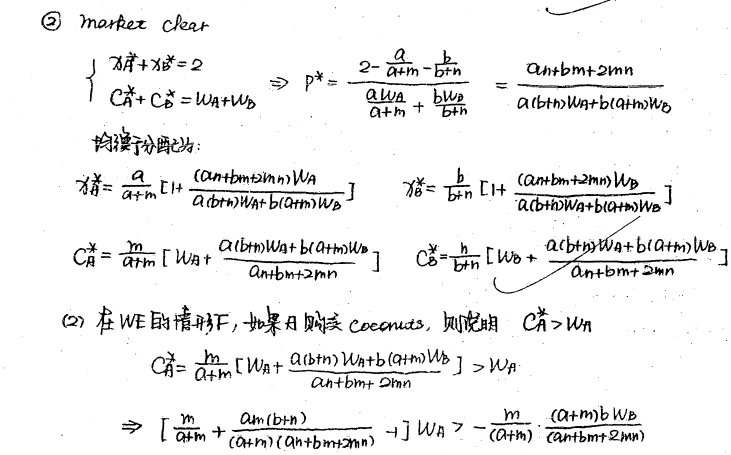 ② market clear
{ x_A^* + x_B^* = 2
C_A^* + C_B^* = W_A + W_B ⇒ P^* = \frac{2 - \frac{a}{a+m} - \frac{b}{b+n}}{\frac{aW_A}{a+m} + \frac{bW_B}{b+n}} = \frac{an+bm+2mn}{a(b+n)W_A+b(a+m)W_B}
均衡分配为:
x_A^* = \frac{a}{a+m} [1 + \frac{(an+bm+2mn)W_A}{a(b+n)W_A+b(a+m)W_B}] x_B^* = \frac{b}{b+n} [1 + \frac{(an+bm+2mn)W_B}{a(b+n)W_A+b(a+m)W_B}]
C_A^* = \frac{m}{a+m} [W_A + \frac{a(b+n)W_A+b(a+m)W_B}{an+bm+2mn}] C_B^* = \frac{n}{b+n} [W_B + \frac{a(b+n)W_A+b(a+m)W_B}{an+bm+2mn}]
(2) 在WE的情形下, 如果A购买 coconuts, 则说明 C_A^* > W_A
C_A^* = \frac{m}{a+m} [W_A + \frac{a(b+n)W_A+b(a+m)W_B}{an+bm+2mn}] > W_A
⇒ [\frac{m}{a+m} + \frac{am(b+n)}{(a+m)(an+bm+2mn)} - 1] W_A > - \frac{m}{(a+m)} · \frac{(a+m)bW_B}{(an+bm+2mn)}